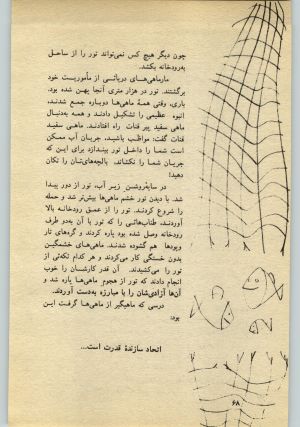 چون دیگر هیچ کس نمی‌تواند تور را از ساحل
به‌رودخانه بکشد.
مارماهی‌های دریائی از مأموریت خود
برگشتند. تور در هزار متری آنجا پهن شده بود.
باری، وقتی همهٔ ماهی‌ها دوباره جمع شدند،
انبوه عظیمی را تشکیل دادند و همه به‌دنبال
ماهی سفید پیر قنات راه افتادنـد. ماهی سفید
قنات گفت: مواظب باشید، جریان آب ممکن
است شما را داخل تور بیندازد برای این که
جریان شما را نکشاند، بالچه‌های‌تان را تکان
دهید!
در سایه‌روشنِ زیر آب، تور از دور پیدا
شد. با دیدن تور خشم ماهی‌ها بیش‌تر شد و حمله
را شروع کردند. تور را از عمق رودخانه بالا
آوردند، طناب‌هائی را که تور با آن به‌دو طرف
رودخانه وصل شده بود پاره کردند و گره‌های تار
وپودها هم گشوده شدند. ماهی‌های خشمگین
بدون خستگی کار می‌کردند و هر کدام تکه‌ئی از
تور را می‌کشیدند. آن قدر کارشان را خوب
انجام دادند که تور از هجوم ماهی‌ها پاره شد و
آن‌ها آزادی‌شان را با مبارزه به‌دست آوردند.
درسی که ماهیگیر از ماهی‌ها گرفت این
بود:
اتحاد سازندهٔ قدرت است...
۶۸